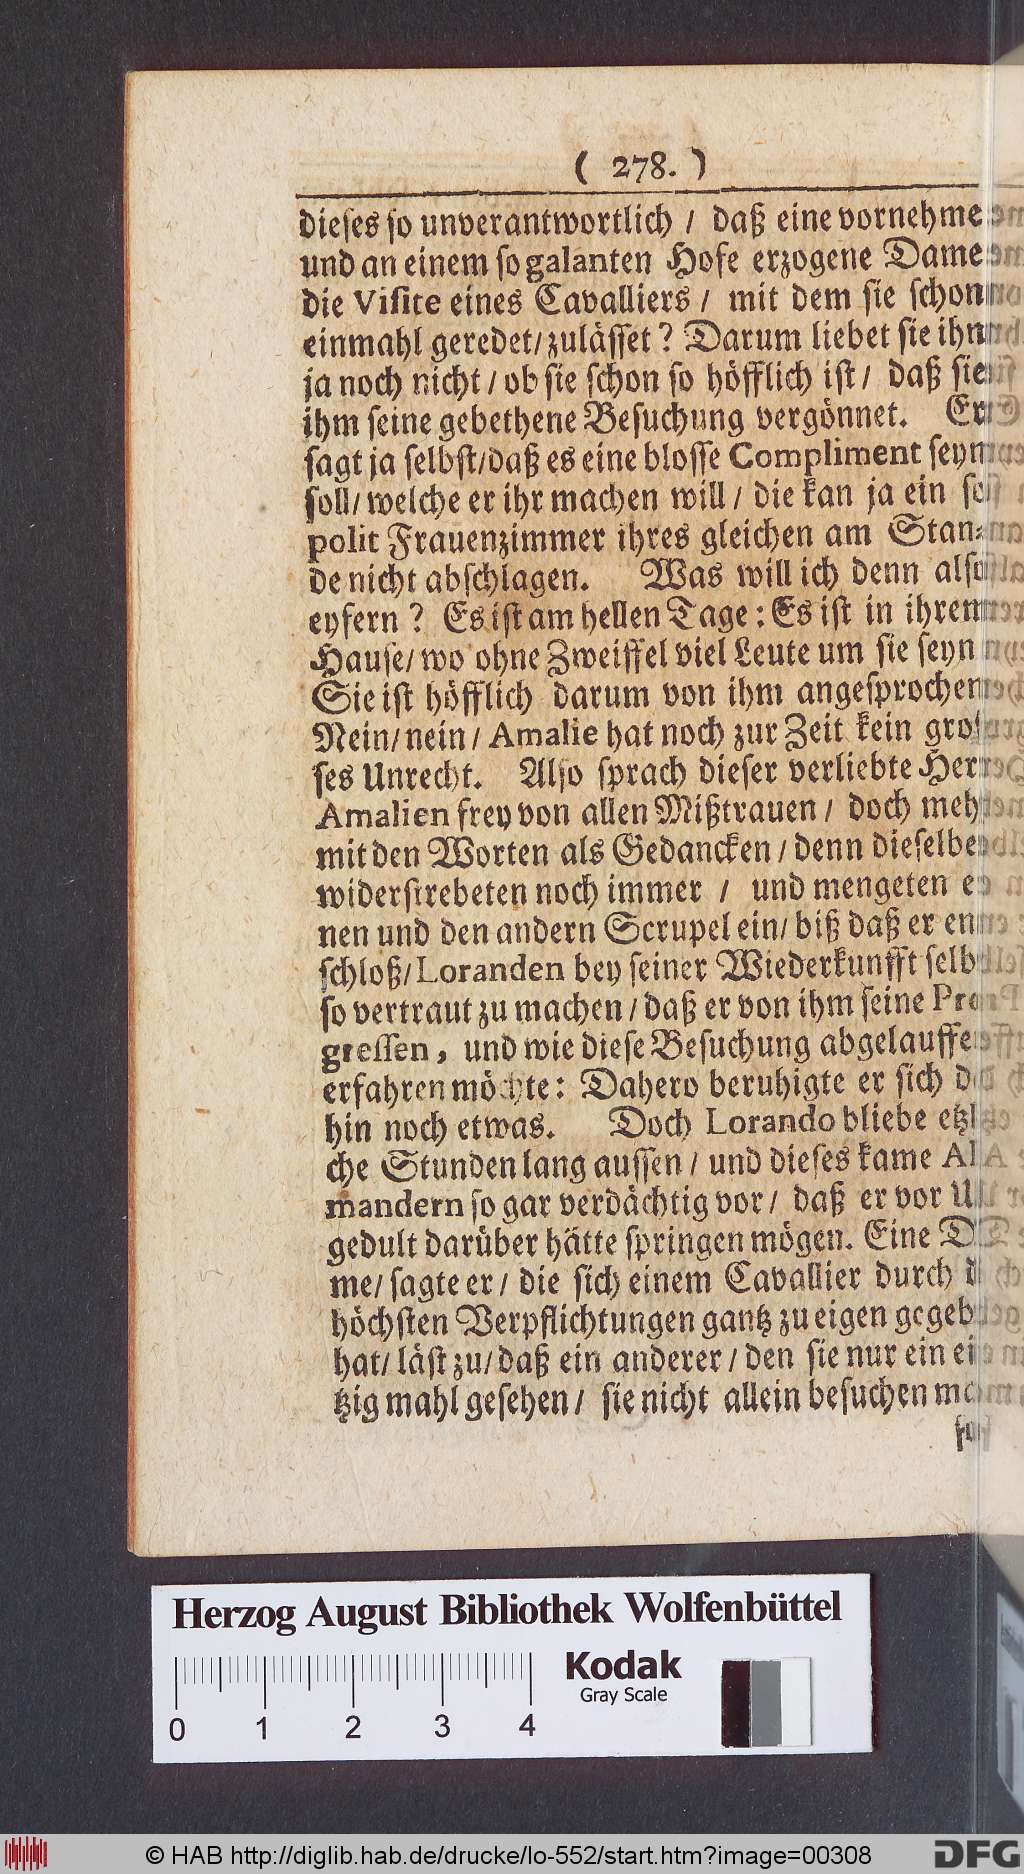 ( 278. )
dieses so unverantwortlich / daß eine vornehme
und an einem so galanten Hofe erzogene Dame
die Visite eines Cavalliers / mit dem sie schon
einmahl geredet/ zulässet ? Darum liebet sie ihn
ja noch nicht / ob sie schon so höfflich ist / daß sie
ihm seine gebethene Besuchung vergönnet. Er
sagt ja selbst/ daß es eine blosse Compliment seyn
soll/ welche er ihr machen will / die kan ja ein so
polit Frauenzimmer ihres gleichen am Stan-
de nicht abschlagen. Was will ich denn also
eyfern ? Es ist am hellen Tage : Es ist in ihrem
Hause/ wo ohne Zweiffel viel Leute um sie seyn
Sie ist höfflich darum von ihm angesprochen
Nein/ nein / Amalie hat noch zur Zeit kein gros
ses Unrecht. Also sprach dieser verliebte Herr
Amalien frey von allen Mißtrauen / doch mehr
mit den Worten als Gedancken / denn dieselbe
widerstrebeten noch immer / und mengeten ei
nen und den andern Scrupel ein/ biß daß er ent
schloß/ Loranden bey seiner Wiederkunfft selbst
so vertraut zu machen / daß er von ihm seine Pro
gressen, und wie diese Besuchung abgelauffen
erfahren möchte: Dahero beruhigte er sich da
hin noch etwas. Doch Lorando bliebe etzli
che Stunden lang aussen / und dieses kame Al
mandern so gar verdächtig vor / daß er vor Un
gedult darüber hätte springen mögen. Eine Da
me/ sagte er / die sich einem Cavallier durch die
höchsten Verpflichtungen gantz zu eigen gegeben
hat/ läst zu/ daß ein anderer / den sie nur ein ein
tzig mahl gesehen / sie nicht allein besuchen mag
Herzog August Bibliothek Wolfenbüttel
Kodak
Gray Scale
0 1 2 3 4
© HAB http://diglib.hab.de/drucke/lo-552/start.htm?image=00308
DFG